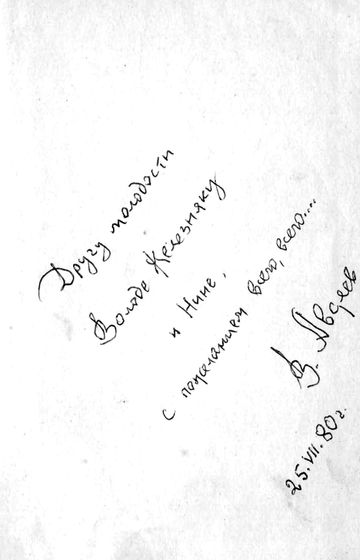 Другу молодости
Володе Железняку
и Нине,
с пожеланием всего, всего....
В. Авдеев
25.VII.80г.